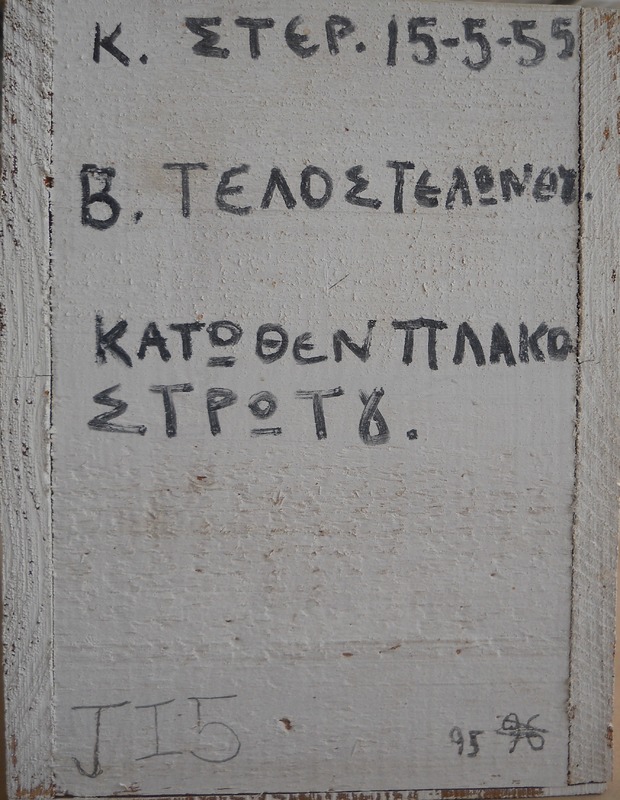 Κ. ΣΤΕΡ. 15-5-55
Β. ΤΕΛΟΣ ΤΕΛΩΝΕȣ.
ΚΑΤΩΘΕΝ ΠΛΑΚΟ
ΣΤΡΩΤȣ.
J I 5
95 96